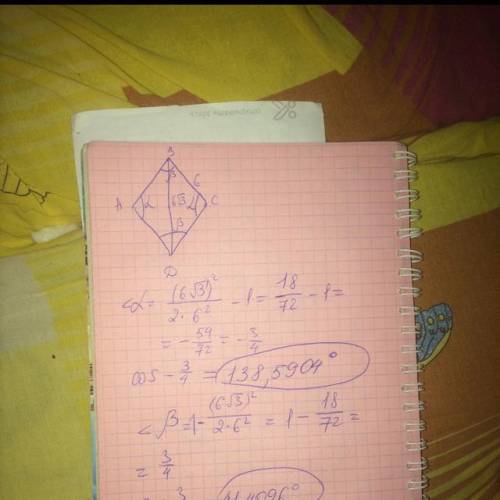 B
β
6
A
α
6√3
α
C
β
D
<α = (6√3)² / 2·6² - 1 = 18/72 - 1 =
= - 54/72 = - 3/4
cos - 3/4 = 138,5904°
<β = 1 - (6√3)² / 2·6² = 1 - 18/72 =
= 3/4
3
41,4096°